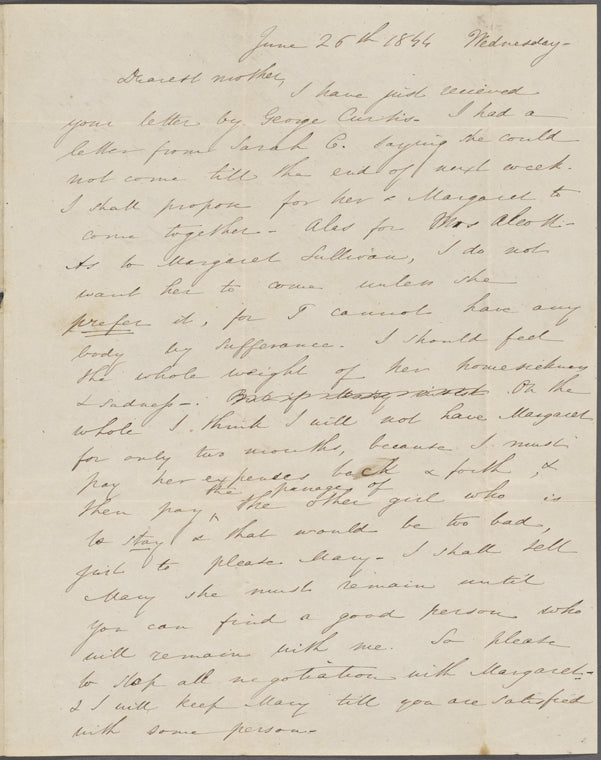 June 26th 1844 Wednesday -
Dearest mother,
I have just recieved
your letter by George Curtis - I had a
letter from Sarah C. saying she could
not come till the end of next week.
I shall propose for her & Margaret to
come together - Alas for Mrs Alcott -
As to Margaret Sullivan, I do not
want her to come unless she
prefer it, for I cannot have any
body by sufferance. I should feel
the whole weight of her homesickness
& sadness -. But if Mary On the
whole I think I will not have Margaret
for only two months, because I must
pay her expenses back & forth, &
the passages of
then pay the other girl who is
to stay & that would be too bad,
just to please Mary - I shall tell
Mary she must remain until
you can find a good person who
will remain with me. So please
to stop all negotiation with Margaret -
& I will keep Mary till you are satisfied
with some person -